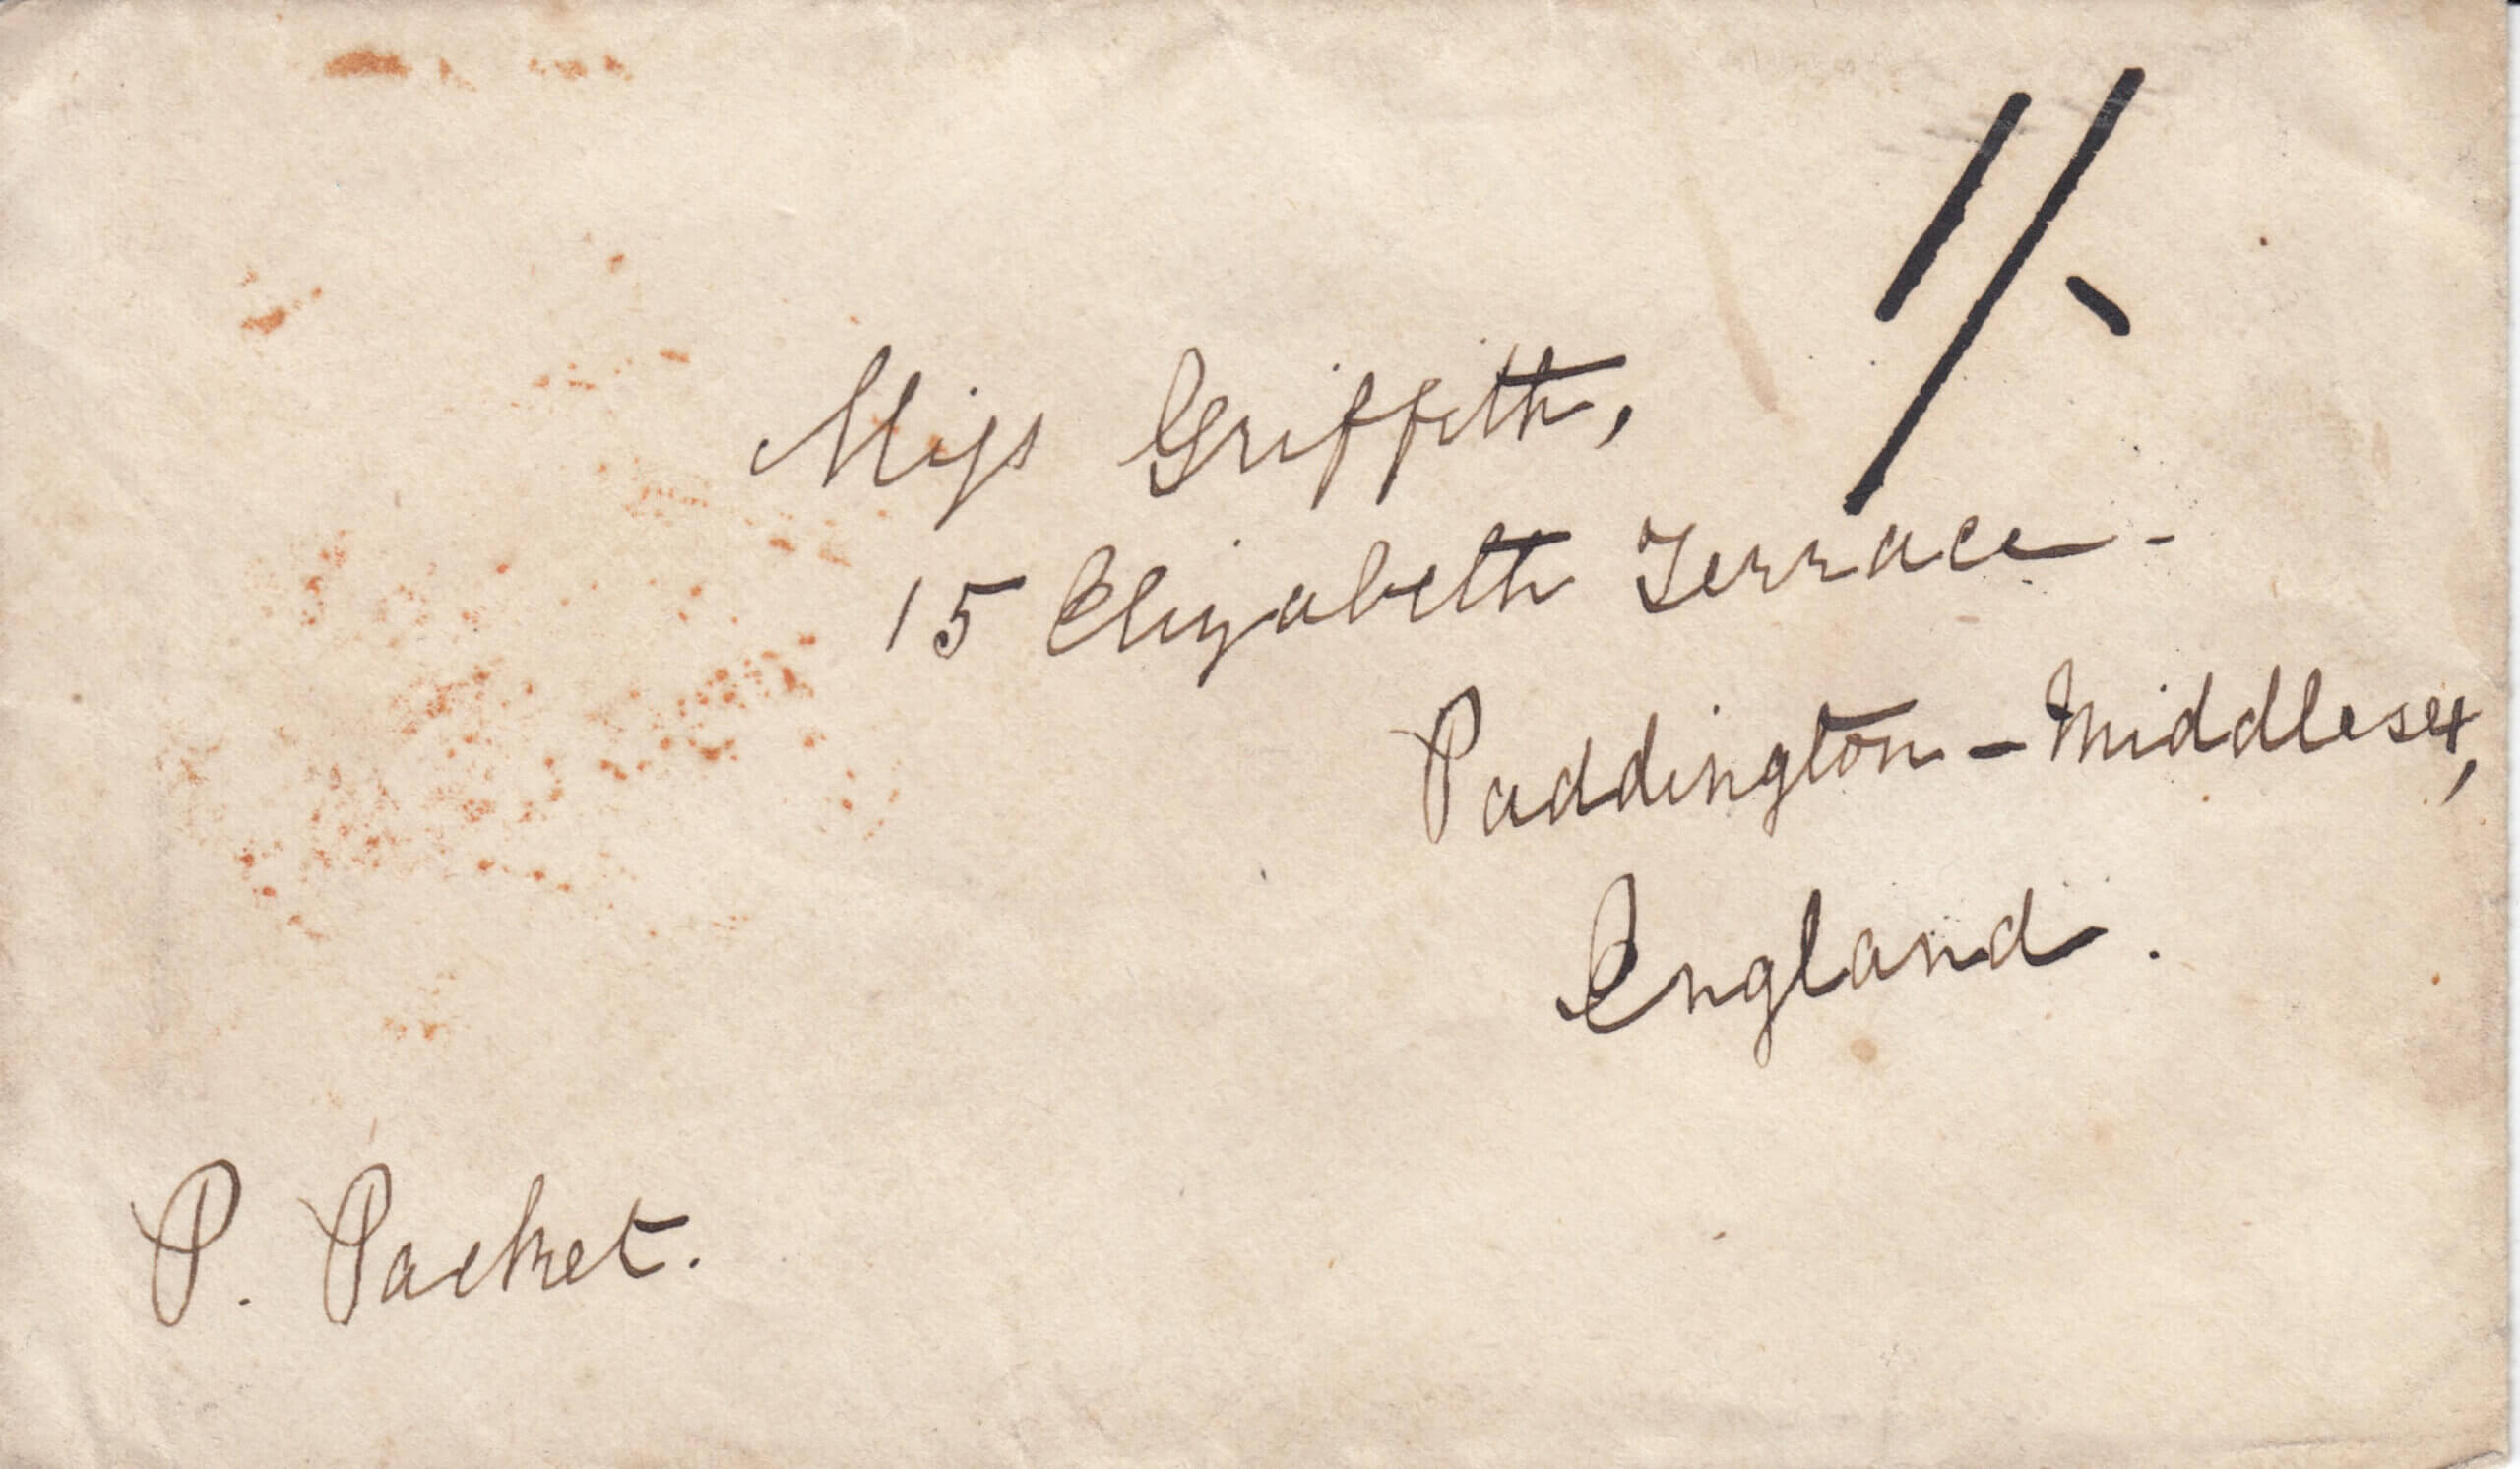 1/-
Miss Griffith,
15 Elizabeth Terrace -
Paddington - Middlesex,
England.
P. Packet.